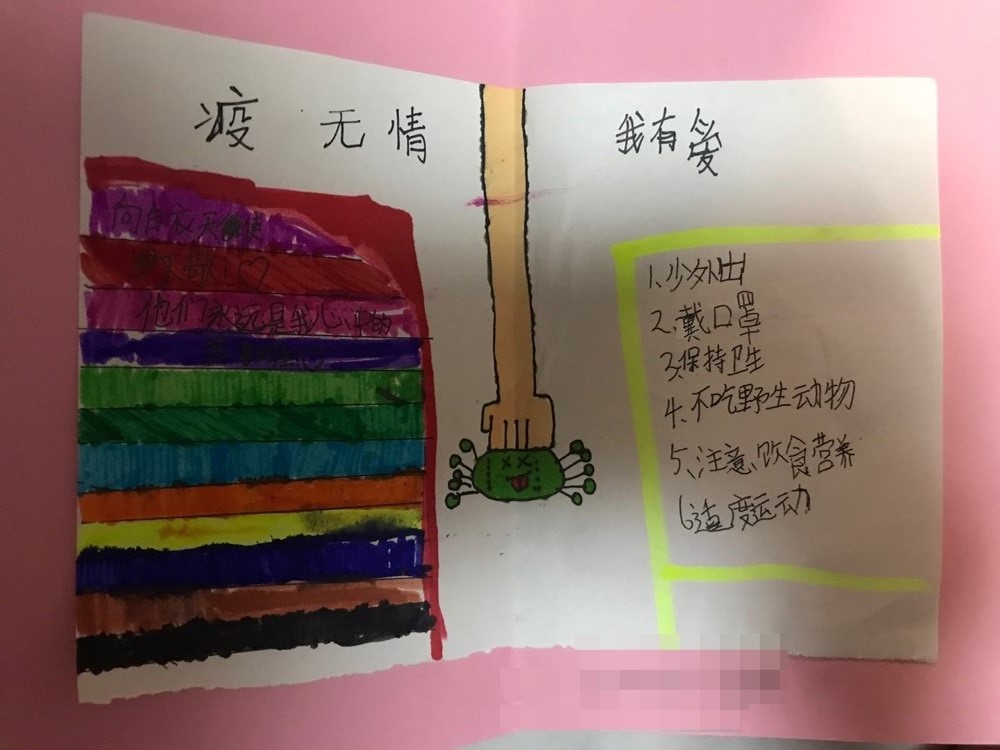 疫 无 情
我有爱
向白衣天使
致敬！♡
他们永远是我心中的
1、少外出
2、戴口罩
3、保持卫生
4、不吃野生动物
5、注意、饮食营养
6、适度运动